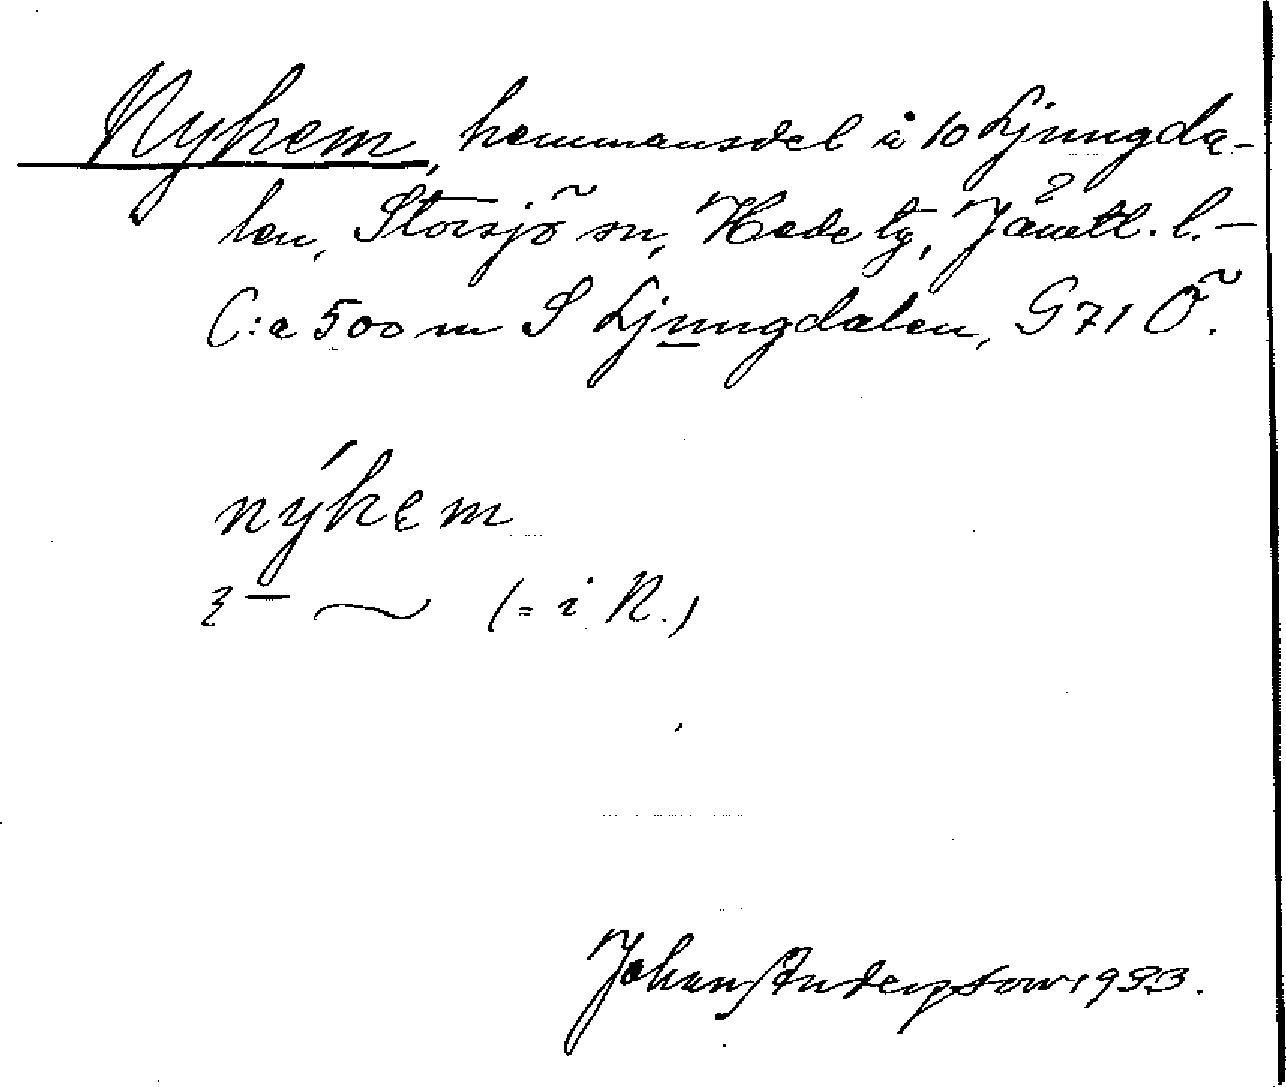 Nyhem, hemmansdel i 10 Ljungda-
len, Storsjö sn, Hede tg, Jämtl. l. –
C:a 500 m S Ljungdalen, G 71 Ö.
nýhem
(= i N.)
Johan Andersson 1933.